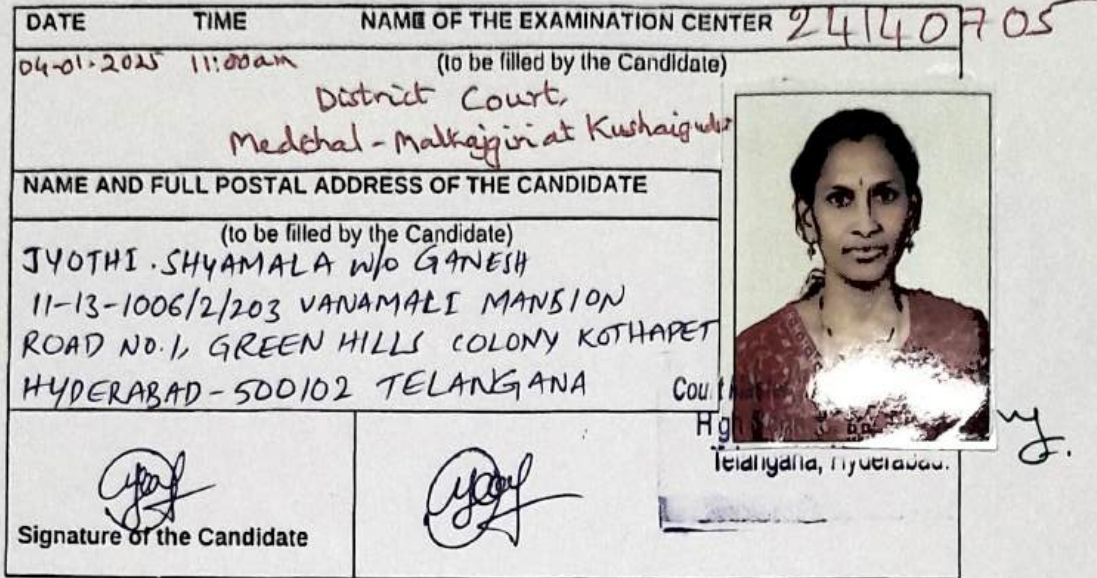 DATE TIME NAME OF THE EXAMINATION CENTER 24140705
04-01-2025 11:00am (to be filled by the Candidate)
District Court,
Medchal - Malkajgiri at
NAME AND FULL POSTAL ADDRESS OF THE CANDIDATE
(to be filled by the Candidate)
JYOTHI . SHYAMALA W/o GANESH
11-13-1006/2/203 VANAMALI MANSION
ROAD NO.1, GREEN HILLS COLONY KOTHAPET
HYDERABAD - 500102 TELANGANA
Telangana, Hyderabad.
Signature of the Candidate